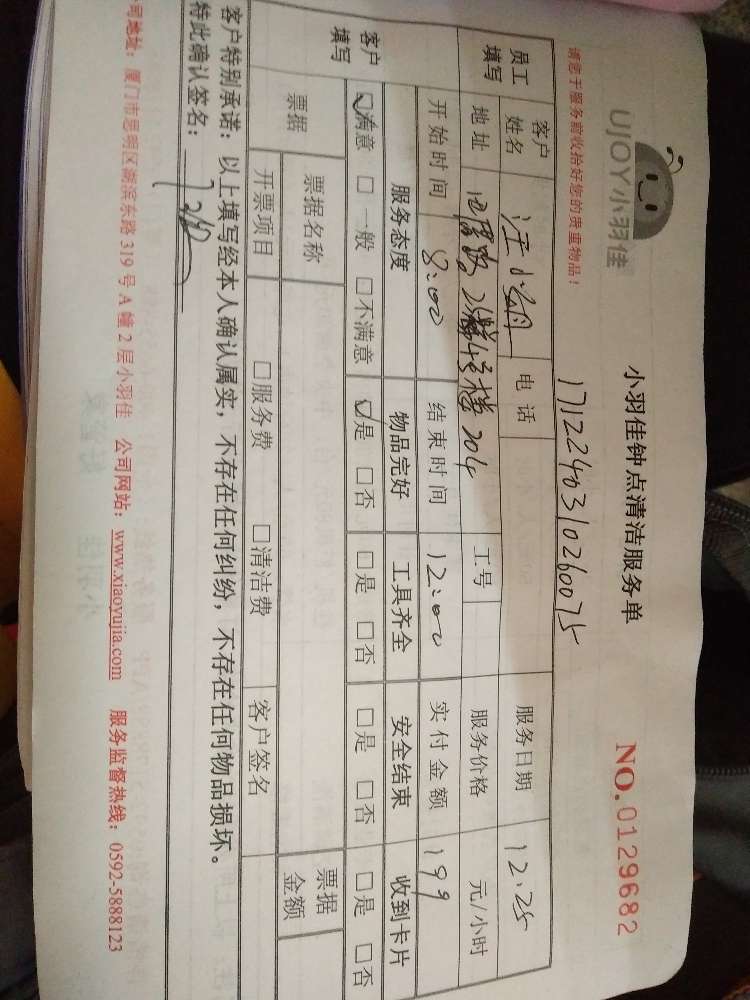 UJOY小羽佳
小羽佳钟点清洁服务单
NO.0129682
请您于服务前收拾好您的贵重物品！
1712240310260075
员工填写
客户姓名 汪 电话 服务日期 12.25
地址 204 工号 服务价格 元/小时
开始时间 8:00 结束时间 12:00 实付金额 199
客户填写
服务态度 物品完好 工具齐全 安全结束 收到卡片
☑满意 □一般 □不满意 ☑是 □否 □是 □否 □是 □否 □是 □否
票据 票据名称 票据金额
开票项目 □服务费 □清洁费 客户签名
客户特别承诺：以上填写经本人确认属实，不存在任何纠纷，不存在任何物品损坏。
特此确认签名：
司地址：厦门市思明区湖滨东路319号A幢2层小羽佳 公司网站：www.xiaoyujia.com 服务监督热线：0592-5888123